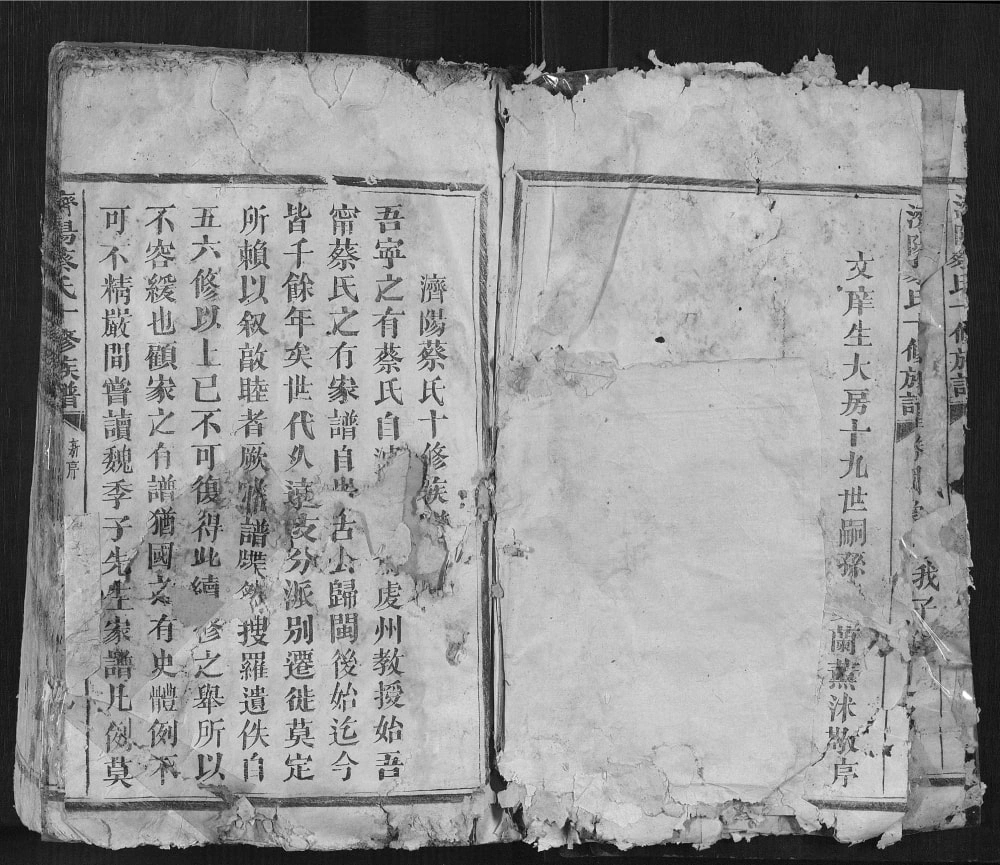 文庠生大房十九世嗣孫蘭薰沐敬序
濟陽蔡氏十修族
吾寧之有蔡氏自虔州教授始吾
甯蔡氏之有家譜自公歸閩後始迄今
皆千餘年矣世代久遠支分派別遷徙莫定
所賴以叙敦睦者厥譜牒然搜羅遺佚自
五六修以上已不可復得此續修之舉所以
不容緩也顧家之有譜猶國之有史體例不
可不精嚴間嘗讀魏季子先生家譜凡例莫
濟陽蔡氏十修族譜
新序